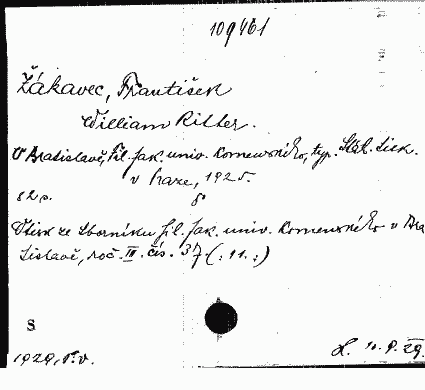 109461
Žákavec, František
William Ritter.
V Bratislavě, Fil. fak. univ. Komenského, typ. Stát. tisk.
v Praze, 1925.
82 s. 8°
Otisk ze Sborníku fil. fak. univ. Komenského v Bra
tislavě, roč. III. čís. 37. (: 11. :)
S
1929, P. v.
L. 10. 9. 29.